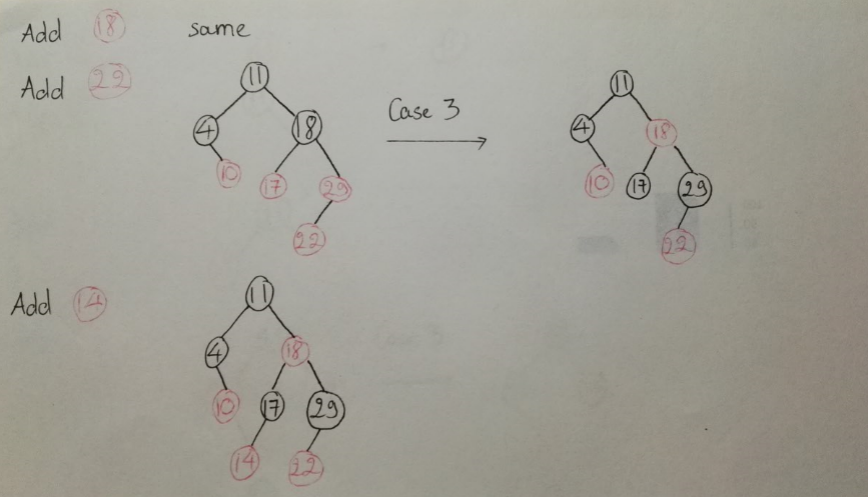 Add 18 same
Add 22
11
4 18
10 17 29
22
Case 3
11
4 18
10 17 29
22
Add 14
11
4 18
10 17 29
14 22